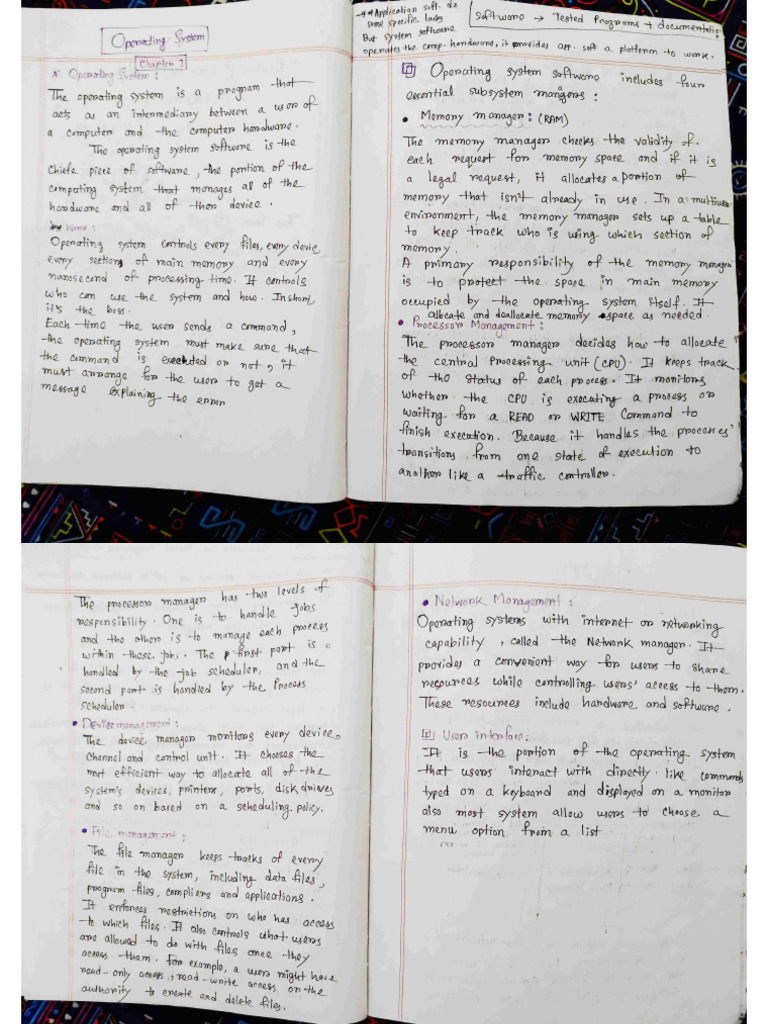 Operating System
Chapter 1
* Operating System :
The operating system is a program that
acts as an intermediary between a user of
a computer and the computer hardware.
The operating system software is the
Chiefe piece of software, the portion of the
computing system that manages all of the
hardware and all of ther device.
Operating system controls every files, every device
every section of main memory and every
nanosecond of processing time. It controls
who can use the system and how. In short
it's the boss.
Each time the user sends a command,
the operating system must make sure that
the command is executed or not, it
must arrange for the user to get a
message explaining the error
** Application soft. do
some specific
But system software
operates the comp. hardware, it provides app. soft a platform to work.
Software → Tested Programs + documentation
Operating system software includes four
essential subsystem mangers :
• Memory manager : (RAM)
The memory manager checks the validity of
each request for memory space and if it is
a legal request, it allocates a portion of
memory that isn't already in use. In a multiuser
environment, the memory manager sets up a table
to keep track who is using which section of
memory.
A primary responsibility of the memory manager
is to protect the space in main memory
occupied by the operating system itself. It
allocate and deallocate memory space as needed.
• Processor Management :
The processor manager decides how to allocate
the central Processing unit (CPU). It keeps track
of the status of each process. It monitors
whether the CPU is executing a process or
waiting for a READ or WRITE Command to
finish execution. Because it handles the processes'
transitions from one state of execution to
another like a traffic controller.
The processor manager has two levels of
responsibility. One is to handle jobs
and the other is to manage each process
within those jobs. The first part is
handled by the job scheduler, and the
second part is handled by the Process
scheduler.
• Device management :
The device manager monitors every device,
Channel and control unit. It chooses the
most efficient way to allocate all of the
system's devices, printers, ports, disk drives
and so on based on a scheduling policy.
• File management :
The file manager keeps tracks of every
file in the system, including data files,
program files, compliers and applications.
It enforces restrictions on who has access
to which files. It also controls what users
are allowed to do with files once they
access them. For example, a user might have
read-only access, read-write access, or the
authority to create and delete files.
• Network Management :
Operating systems with internet or networking
capability, called the Network manager. It
provides a convenient way for users to share
resources while controlling users' access to them.
These resources include hardware and software.
User interface :
It is the portion of the operating system
that users interact with directly. like commands
typed on a keyboard and displayed on a monitor
also most system allow users to choose a
menu option from a list